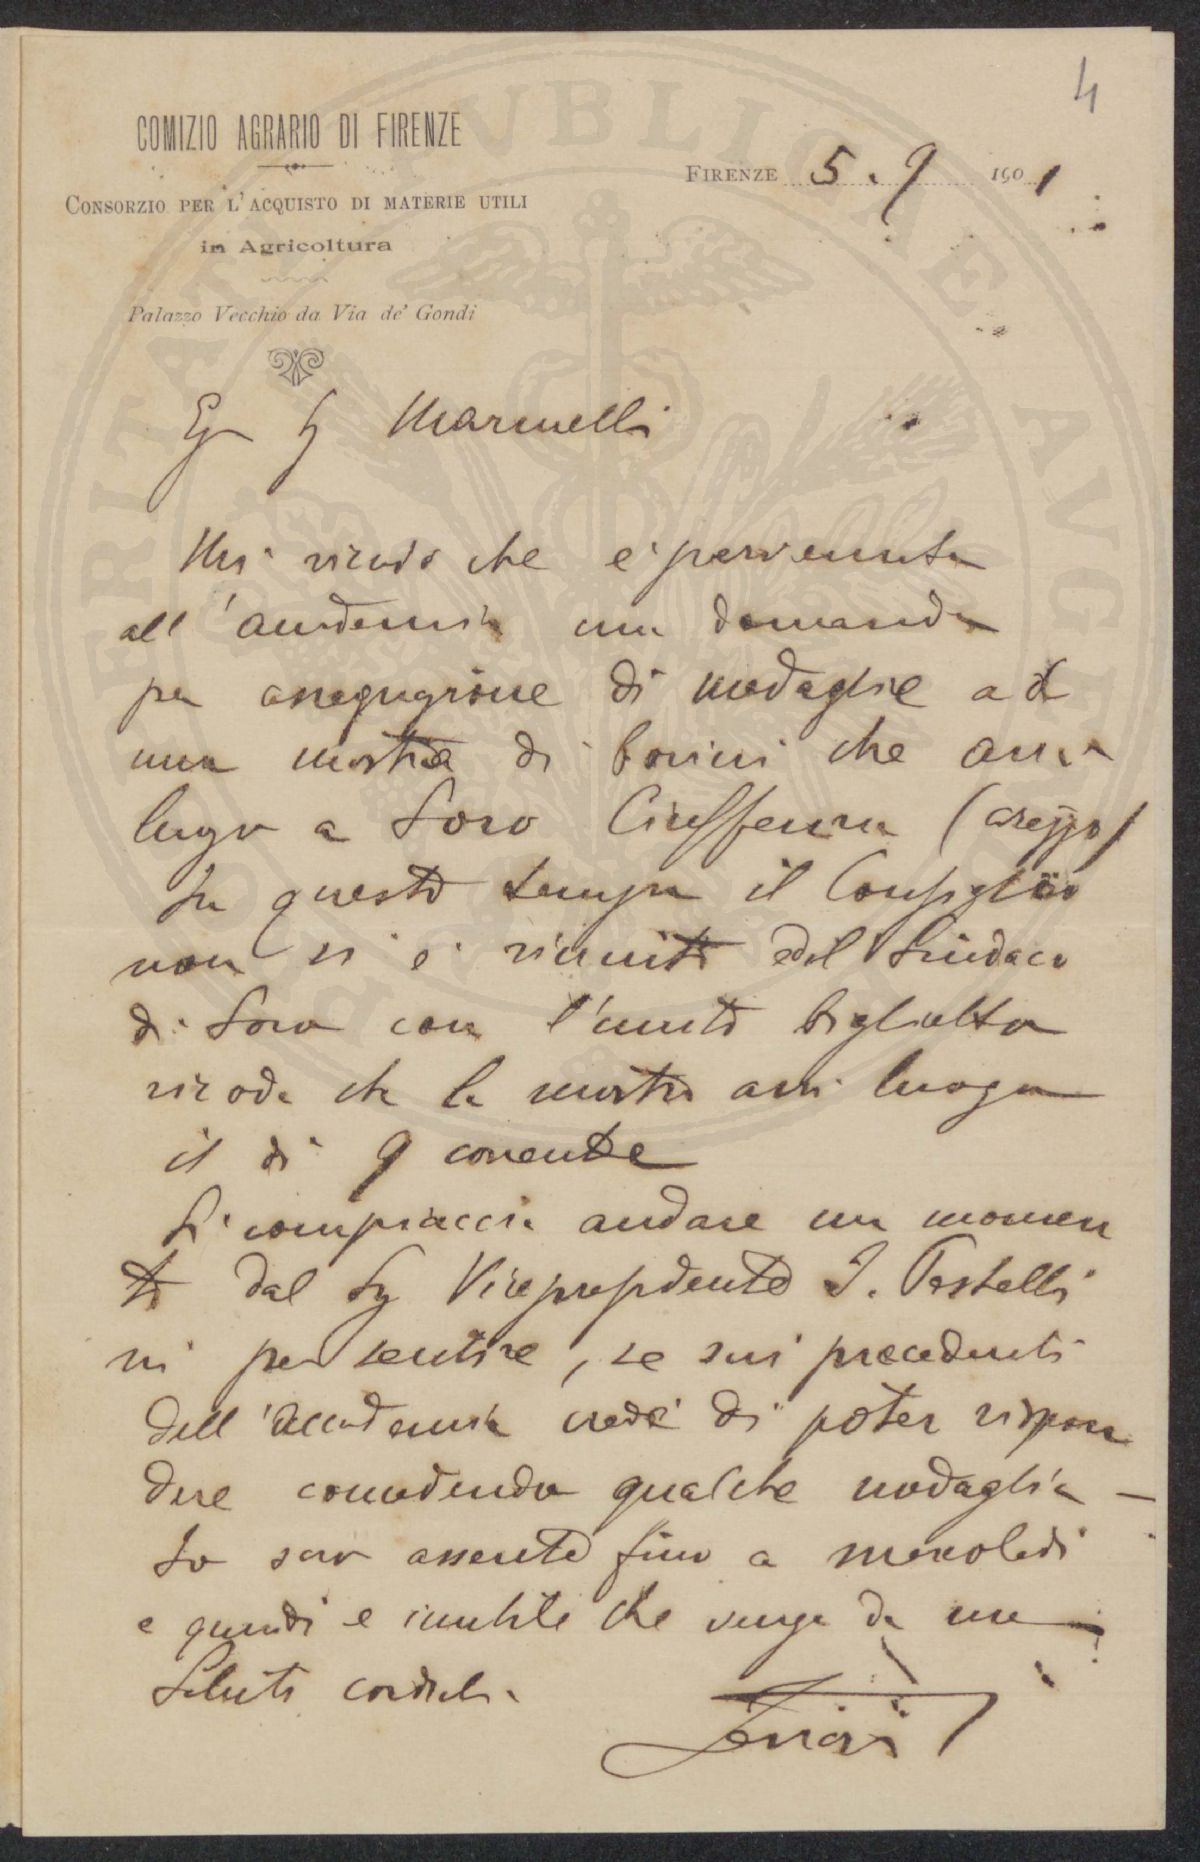 4
COMIZIO AGRARIO DI FIRENZE
FIRENZE 5. 9 1901
CONSORZIO PER L'ACQUISTO DI MATERIE UTILI
in Agricoltura
Palazzo Vecchio da Via de' Gondi
Eg Sg Marinelli
Mi ricordo che e' pervenuta
all'accademia una domanda
per assegnazione di medaglie ad
una mostra di bovini che avrà
luogo a Loro Ciuffenna (Arezzo)
In questo tempo il Consiglio
non si è riunito ed il Sindaco
di Loro con l'unito biglietto
ricorda che la mostra avrà luogo
il dì 9 corrente
Si compiaccia andare un momen
to dal Sg Vicepresidente I. Pestelli
ni per sentire, se sui precedenti
dell'accademia crede di poter rispon
dere concedendo qualche medaglia —
Io sarò assente fino a mercoledì
e quindi è inutile che venga da me
Saluti cordiali